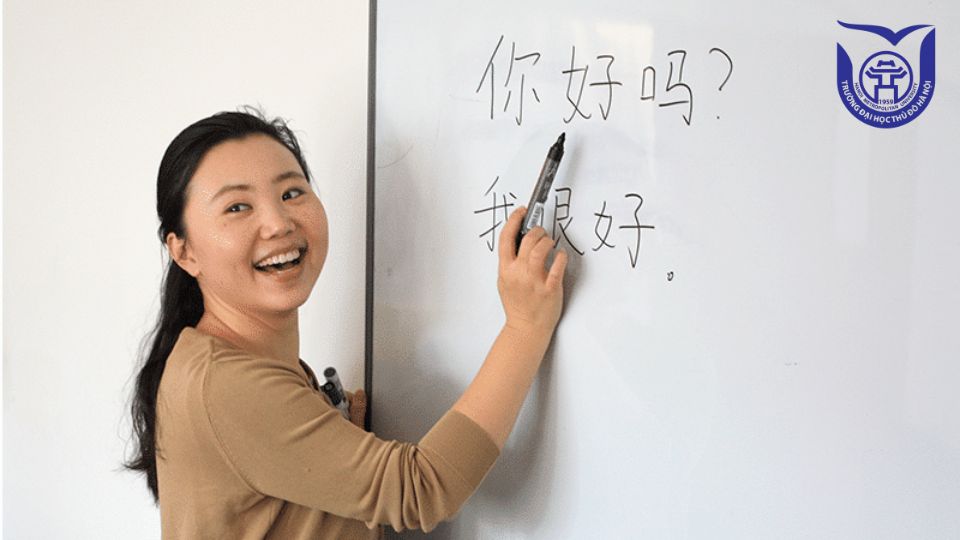 你好吗？
我很好。
1959
HANOI METROPOLITAN UNIVERSITY
TRƯỜNG ĐẠI HỌC THỦ ĐÔ HÀ NỘI